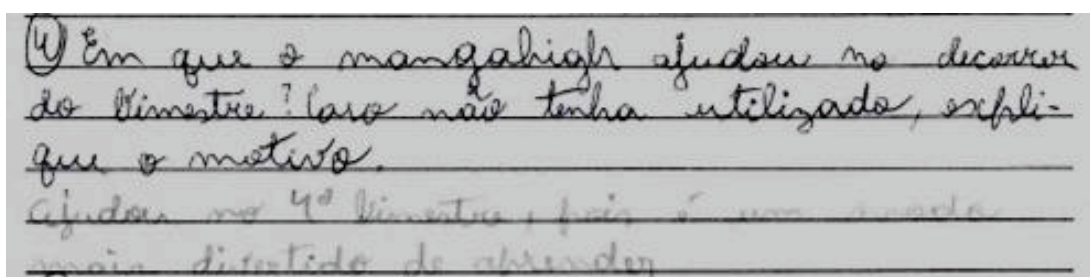 4) Em que o mangahigh ajudou no decorrer
do bimestre? Caso não tenha utilizado, expli-
que o motivo.
ajudou no 4º bimestre, pois é um modo
mais divertido de aprender